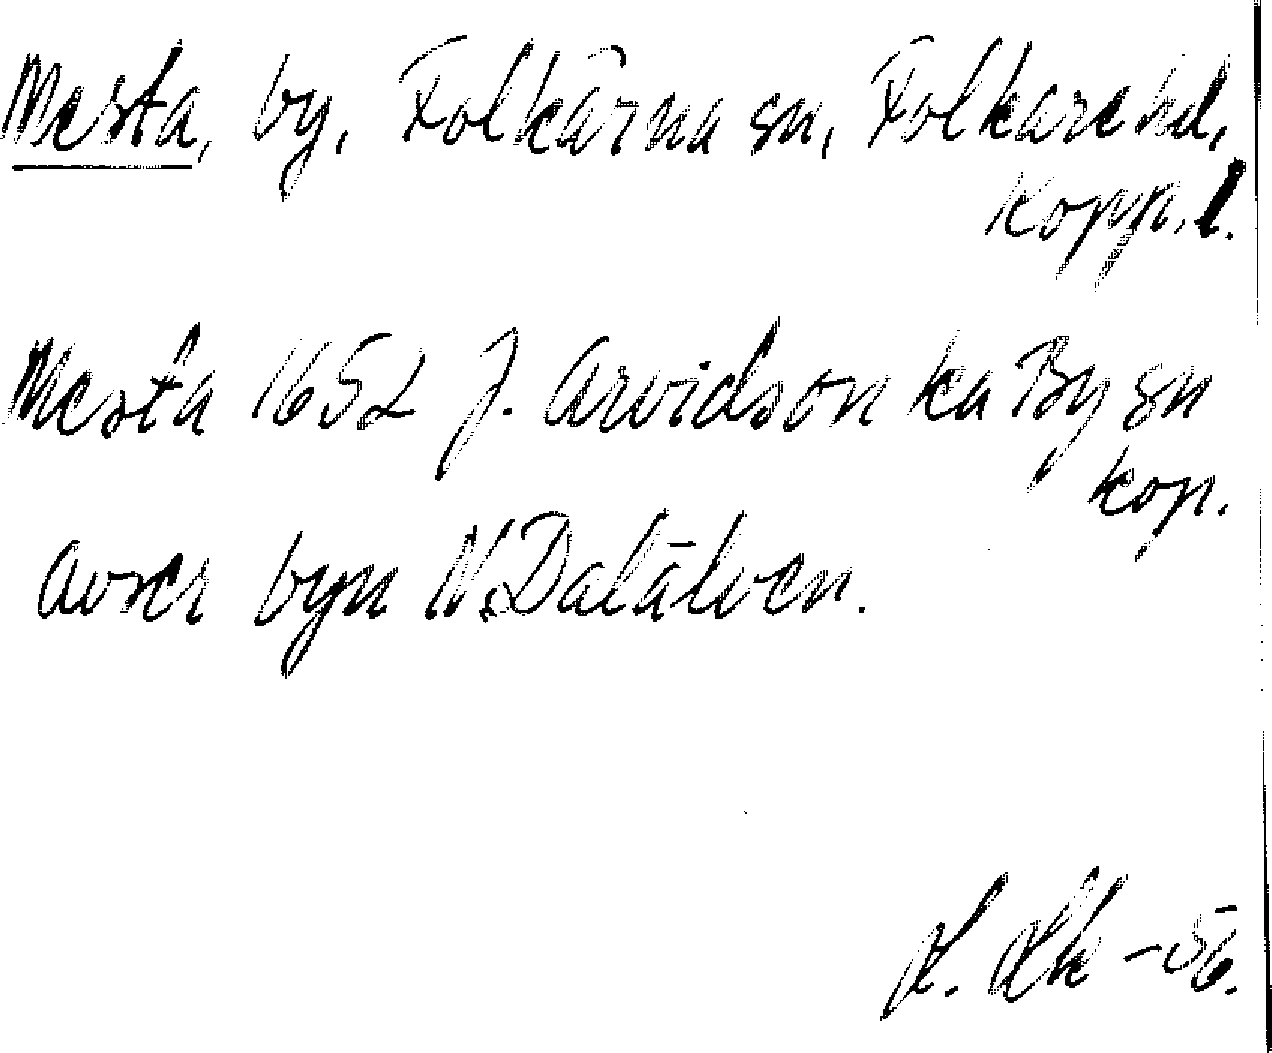 Mesta, by, Folkärna sn, Folkare hd,
Kopp. l.
Mesta 1652 J. Arvidson ka By sn
kop.
Avser byn N. Dalälven.
-56.